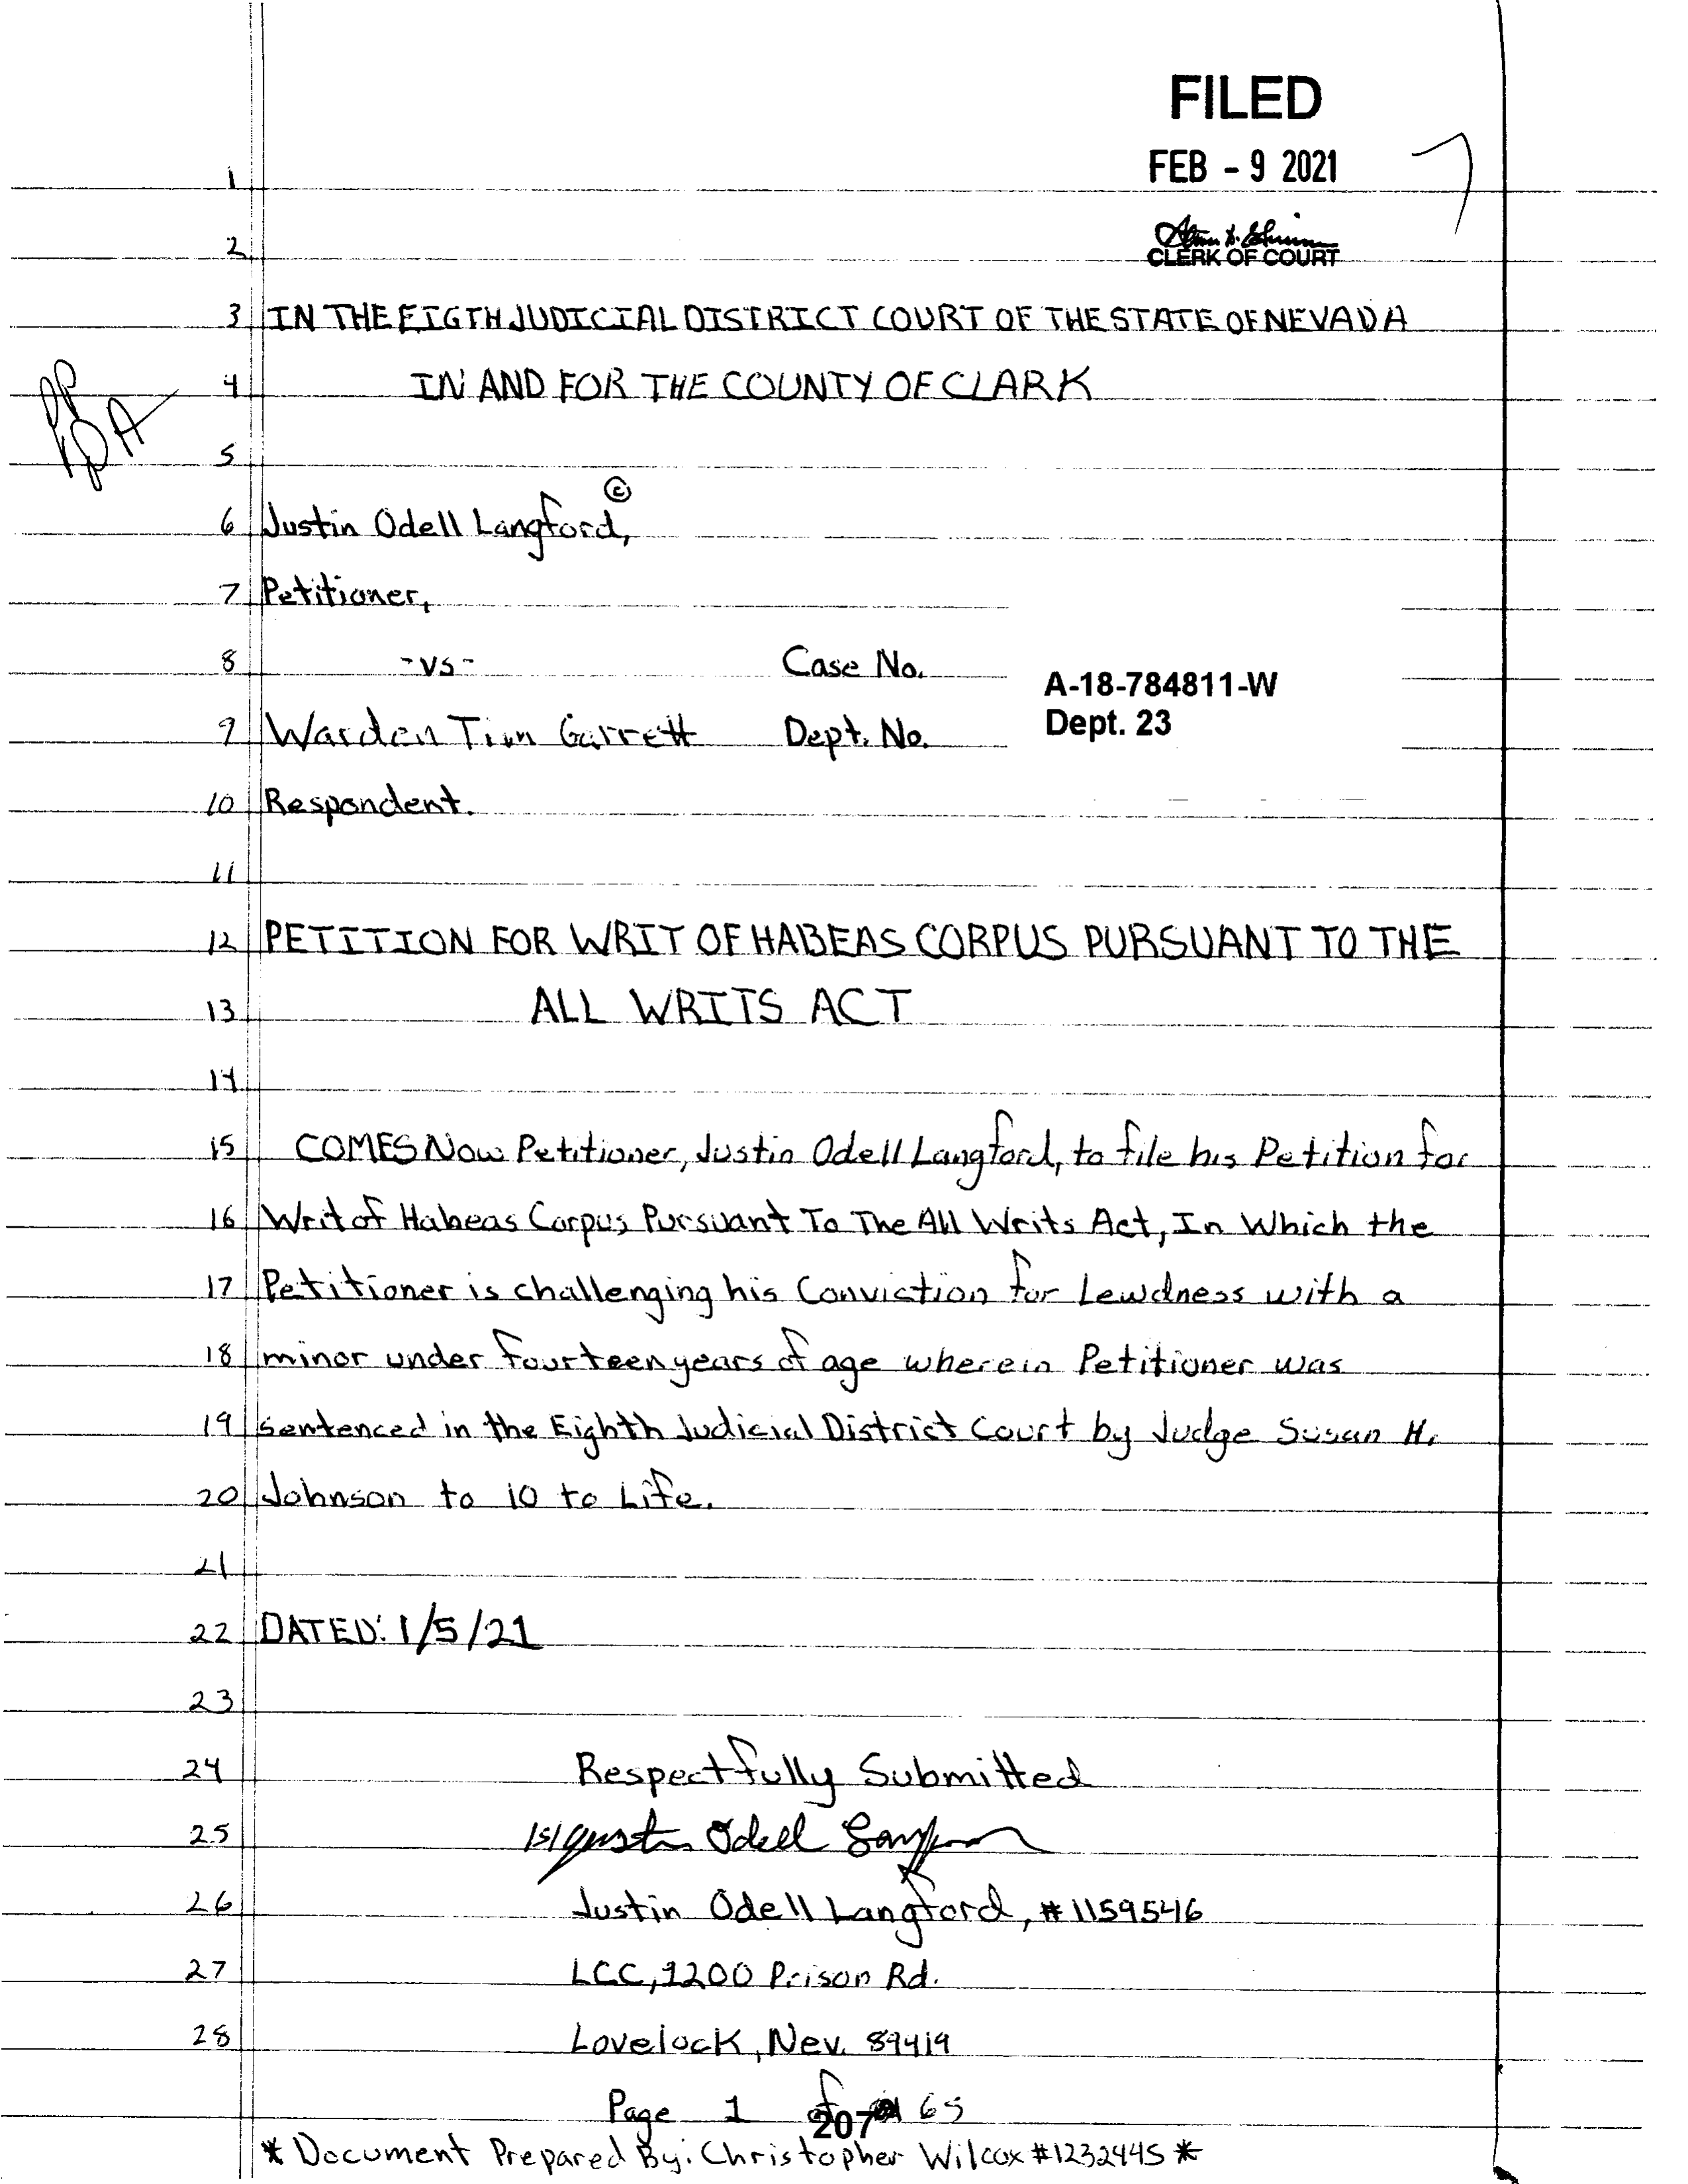 FILED
FEB - 9 2021
CLERK OF COURT
1
2
3 IN THE EIGTH JUDICIAL DISTRICT COURT OF THE STATE OF NEVADA
4 IN AND FOR THE COUNTY OF CLARK
5
6 Justin Odell Langford, ©
7 Petitioner,
8 -vs- Case No. A-18-784811-W
9 Warden Tim Garrett Dept. No. Dept. 23
10 Respondent.
11
12 PETITION FOR WRIT OF HABEAS CORPUS PURSUANT TO THE
13 ALL WRITS ACT
14
15 COMES Now Petitioner, Justin Odell Langford, to file his Petition for
16 Writ of Habeas Corpus Pursuant To The All Writs Act, In Which the
17 Petitioner is challenging his Conviction for Lewdness with a
18 minor under fourteen years of age wherein Petitioner was
19 sentenced in the Eighth Judicial District Court by Judge Susan H.
20 Johnson to 10 to Life.
21
22 DATED: 1/5/21
23
24 Respectfully Submitted
25 /s/ Justin Odell Langford
26 Justin Odell Langford, #1159546
27 LCC, 1200 Prison Rd.
28 Lovelock, Nev. 89419
Page 1 of 65
207
* Document Prepared By: Christopher Wilcox #1232445 *